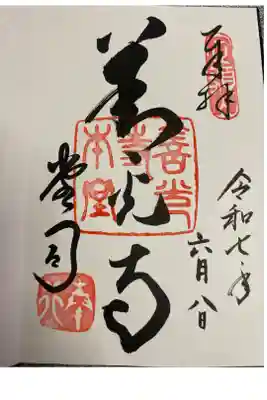 奉拝
令和七年
六月八日
善光寺
善光
寺
本堂
堂司